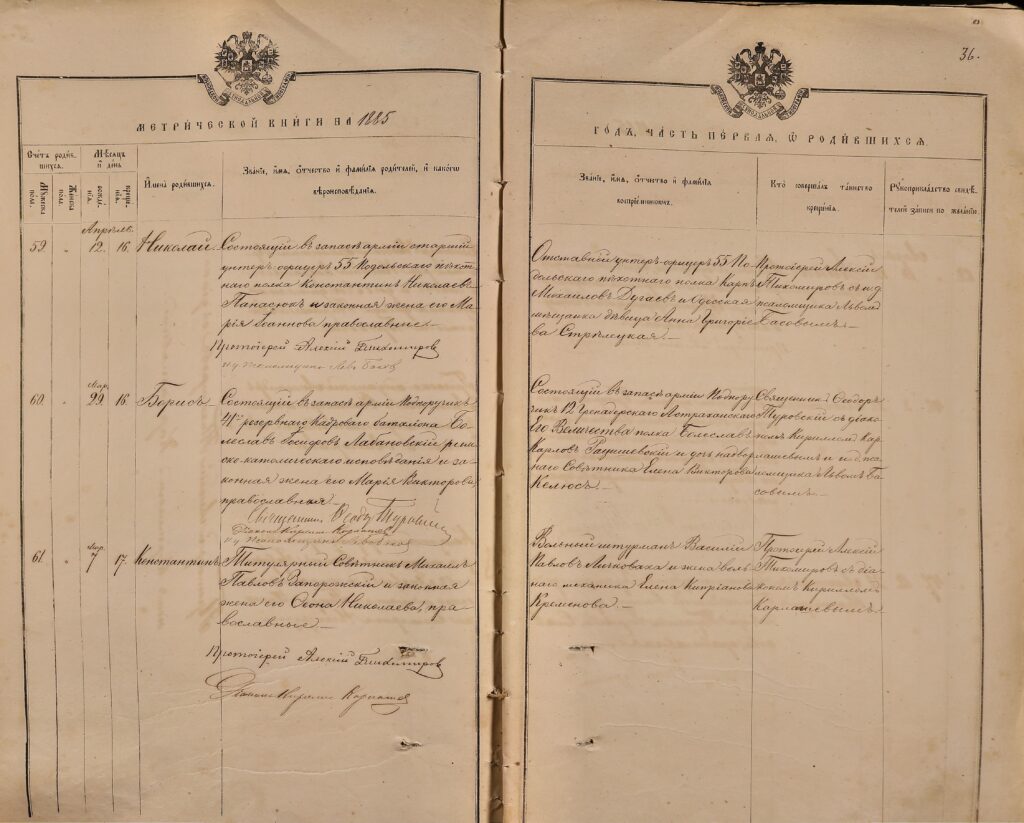 36.
МЕТРИЧЕСКОЙ КНИГИ НА 1885
ГОДЪ, ЧАСТЬ ПЕРВАЯ, Ѡ РОДИВШИХСЯ.
Счетъ родившихся.
Мужеска пол.
Женска пол.
Мѣсяцъ и день
рожденія.
крещенія.
Имена родившихся.
Званіе, имя, отчество и фамилія родителей, и какого
вѣроисповѣданія.
Званіе, имя, отчество и фамилія
воспріемниковъ.
Кто совершалъ таинство
крещенія.
Рукоприкладство свидѣ-
телей записи по желанію.
Апрѣль
59 12. 16. Николай
Состоящій въ запасѣ арміи старшій
унтеръ-офицеръ 55 Подольскаго пѣхот-
наго полка Константинъ Николаевъ
Панасюкъ и законная жена его Ма-
рія Іоаннова православные.—
Протоіерей Алексій Тихомировъ
Отставной унтеръ-офицеръ 55 По-
дольскаго пѣхотнаго полка Карпъ
Михаиловъ Дугаевъ и Одесская
мѣщанка дѣвица Анна Григоріе-
ва Стрѣлецкая.—
Протоіерей Алексій
Тихомировъ съ и д
псаломщика Львомъ
Басовымъ.—
Мар.
60. 29. 16. Борисъ
Состоящій въ запасѣ арміи Подпоручикъ
41го резервнаго Кадроваго баталіона Бо-
леславъ Іосифовъ Лабановскій рим-
ско-католическаго исповѣданія и за-
конная жена его Марія Викторова
православная
Священникъ Ѳеодоръ Туровскій
Состоящій въ запасѣ арміи Подпору-
чикъ 12 Гренадерскаго Астраханскаго
Его Величества полка Болеславъ
Карловъ Рацишевскій и дочь надвор-
наго Совѣтника Елена Викторова
Келюсъ.—
Священникъ Ѳеодоръ
Туровскій съ діако-
помъ Кирилломъ Кар-
лашевымъ и и.д. пса-
ломщика Львомъ Ба-
совымъ.—
Мар.
61. 7 17. Константинъ
Титулярный Совѣтникъ Михаилъ
Павловъ Запорожскій и законная
жена его Ѳеона Николаева, пра-
вославные.—
Протоіерей Алексій Тихомировъ
Вольный штурманъ Василій
Павловъ и жена воль-
наго механика Елена Кипріанова
Кременова.—
Протоіерей Алексій
Тихомировъ съ діа-
кономъ Кирилломъ
Карлашевымъ